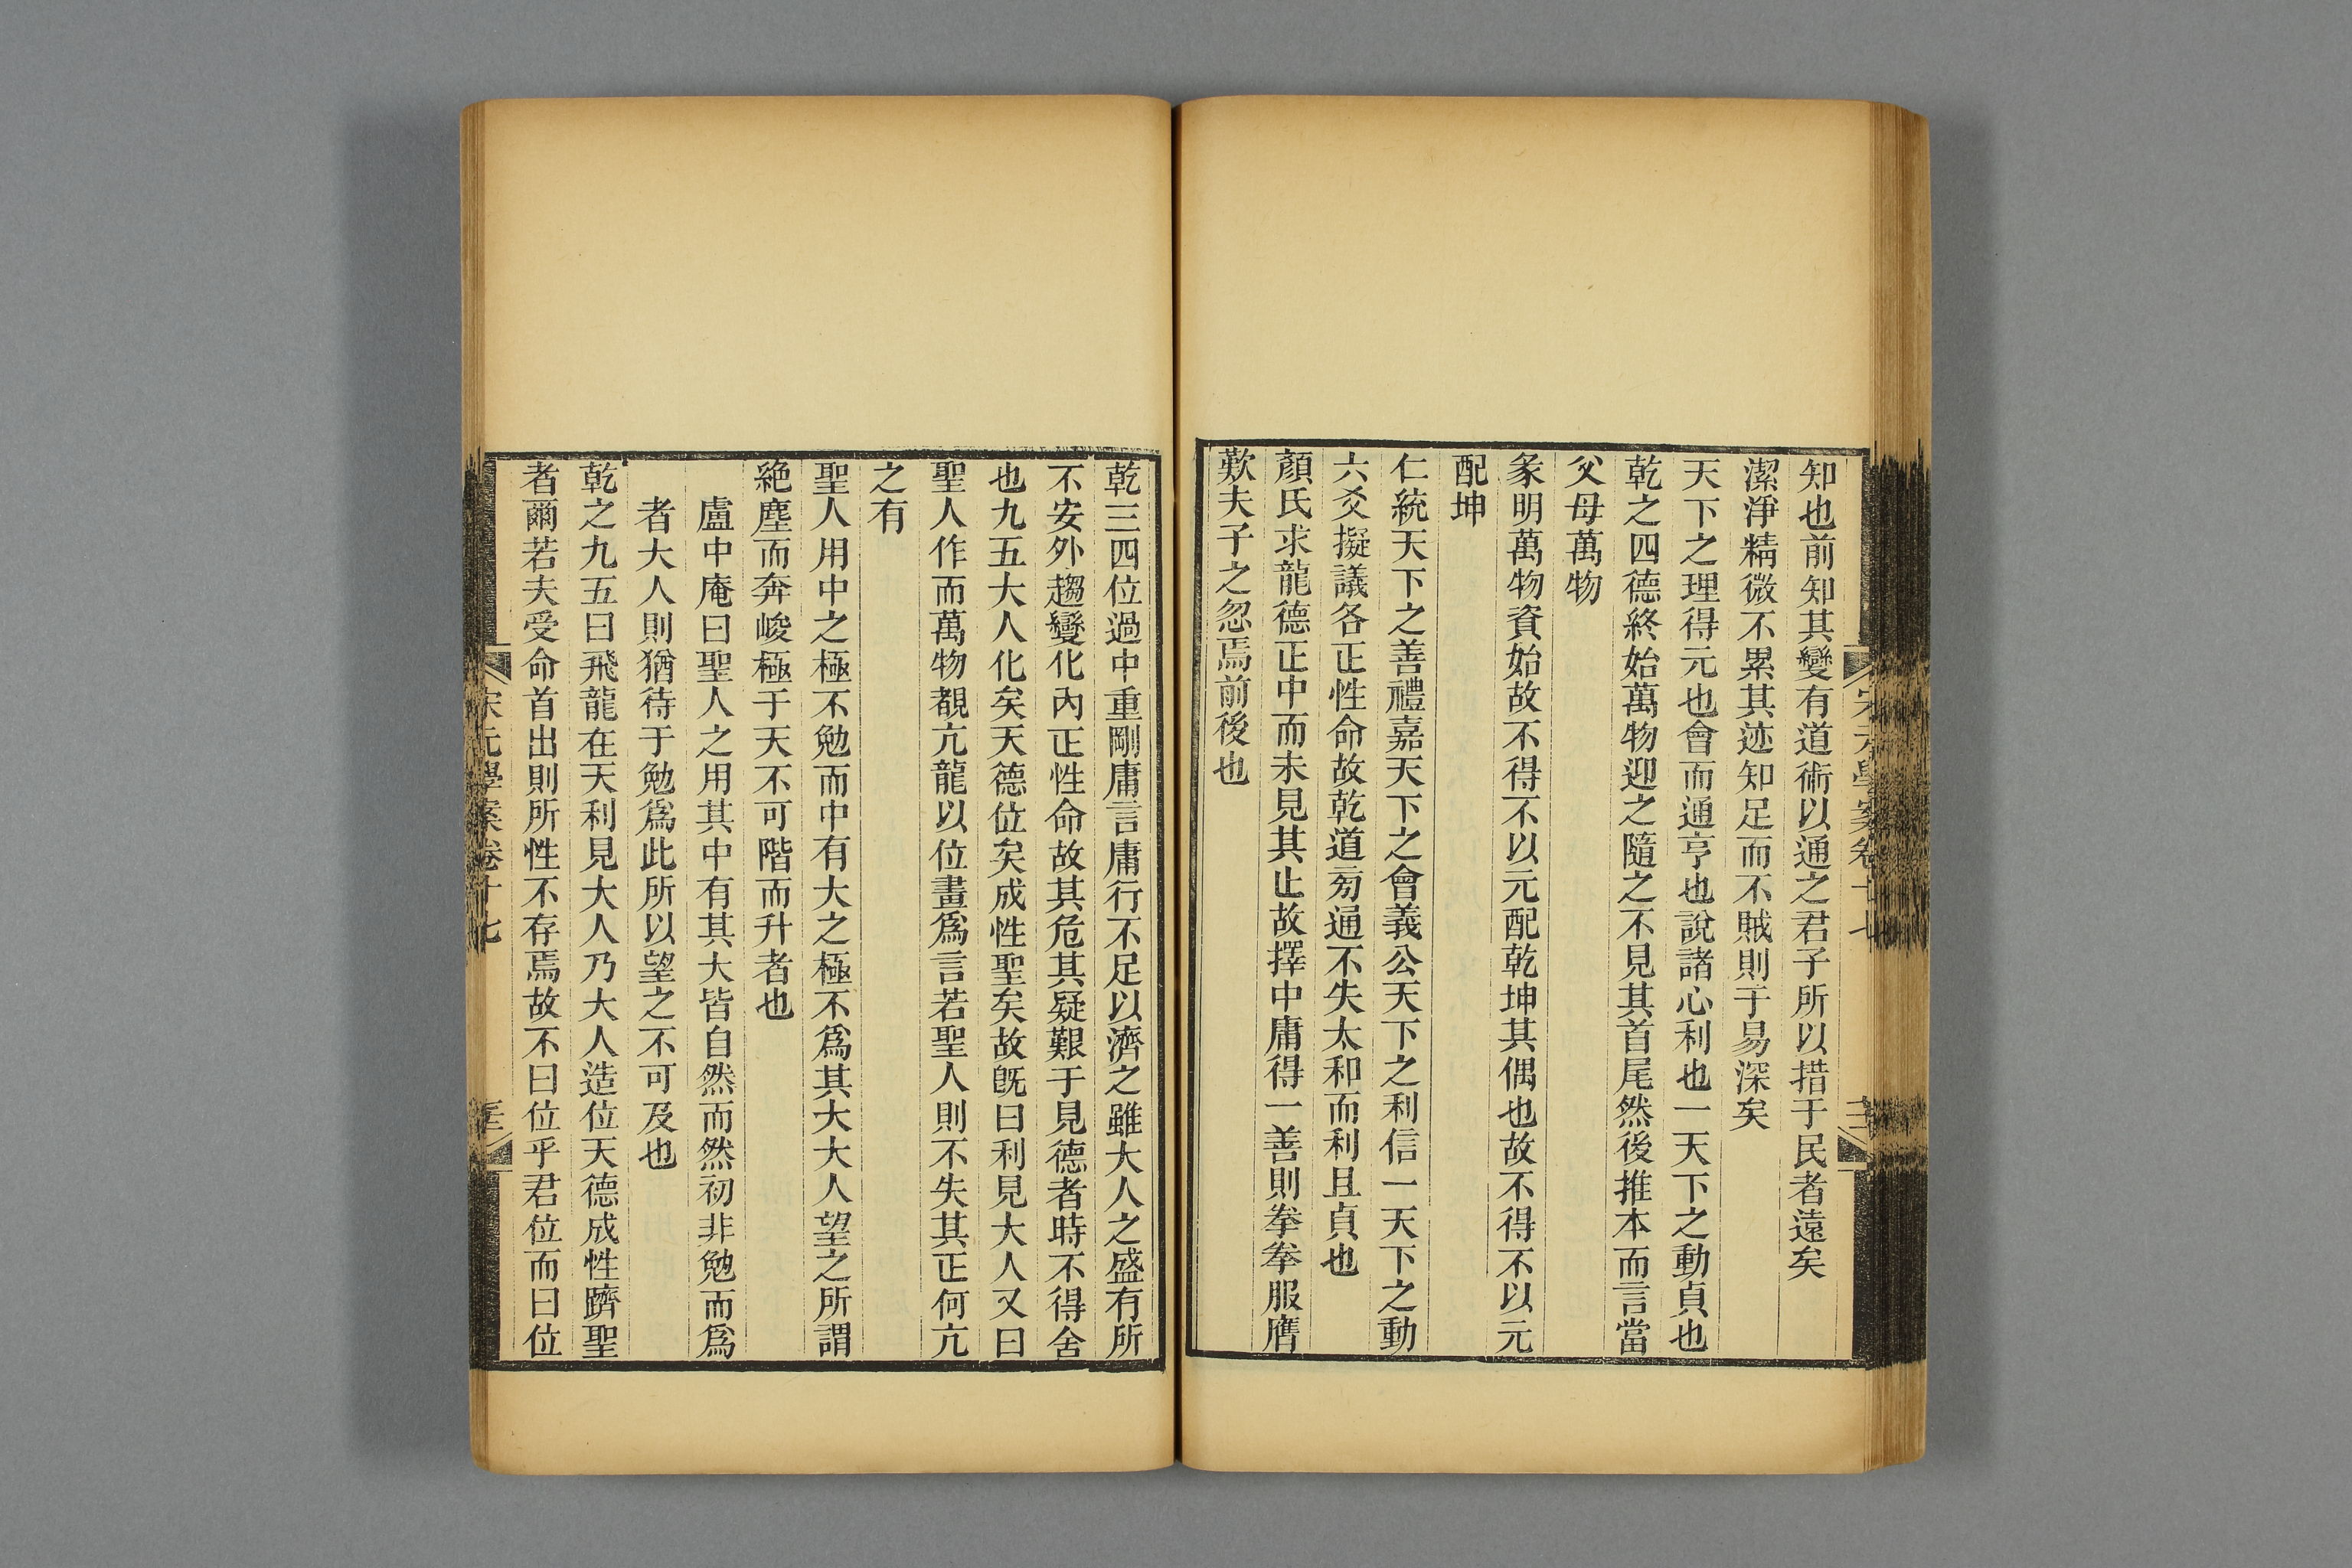 知也前知其變有道術以通之君子所以措于民者遠矣
潔淨精微不累其迹知足而不賊則于易深矣
天下之理得元也會而通亨也說諸心利也一天下之動貞也
乾之四德終始萬物迎之隨之不見其首尾然後推本而言當
父母萬物
彖明萬物資始故不得不以元配乾坤其偶也故不得不以元
配坤
仁統天下之善禮嘉天下之會義公天下之利信一天下之動
六爻擬議各正性命故乾道旁通不失太和而利且貞也
顏氏求龍德正中而未見其止故擇中庸得一善則拳拳服膺
歎夫子之忽焉前後也
乾三四位過中重剛庸言庸行不足以濟之雖大人之盛有所
不安外趨變化內正性命故其危其疑艱于見德者時不得舍
也九五大人化矣天德位矣成性聖矣故旣曰利見大人又曰
聖人作而萬物覩亢龍以位畫爲言若聖人則不失其正何亢
之有
聖人用中之極不勉而中有大之極不爲其大大人望之所謂
絕塵而奔峻極于天不可階而升者也
盧中庵曰聖人之用其中有其大皆自然而然初非勉而爲
者大人則猶待于勉爲此所以望之不可及也
乾之九五曰飛龍在天利見大人乃大人造位天德成性躋聖
者爾若夫受命首出則所性不存焉故不曰位乎君位而曰位
宋元學案卷十七